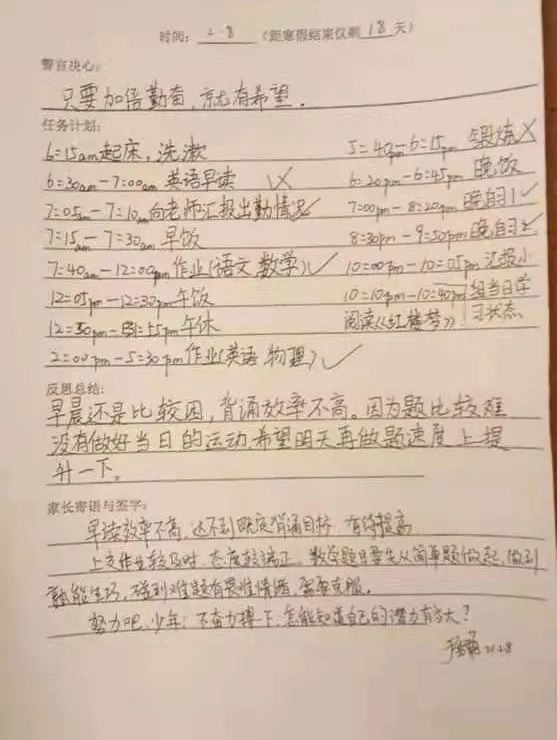 时间: 2.8 (距寒假结束仅剩 18 天)
誓言决心:
只要加倍勤奋，就有希望.
任务计划:
6:15am起床，洗漱
6:30am-7:00am 英语早读
7:05am-7:10am向老师汇报出勤情况✓
7:15am-7:30am 早饭
7:40am-12:00pm 作业(语文 数学)✓
12:05pm-12:30pm午饭
12:30pm-1:55pm午休
2:00pm-5:30pm作业(英语 物理)✓
5:40pm-6:15pm 锻炼X
6:20pm-6:45pm 晚饭
7:00pm-8:20pm 晚自1✓
8:30pm-9:50pm晚自2✓
10:00pm-10:05pm 汇报小
10:10pm-10:40pm 组当日学
阅读《红楼梦》 习状态
反思总结:
早晨还是比较困，背诵效率不高。因为题比较难
没有做好当日的运动.希望明天再做题速度上提
升一下。
家长寄语与签字:
早读效率不高，达不到既定背诵目标 有待提高
上交作业较及时.态度较端正.数学题目要先从简单题做起.做到
熟能生巧.碰到难题有畏难情绪.需要克服.
努力吧，少年! 不奋力搏一下.怎能知道自己的潜力有多大?
21.2.8